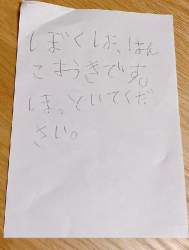 しばくしは、はん
こまうきです。
ほっといてくだ
さい。